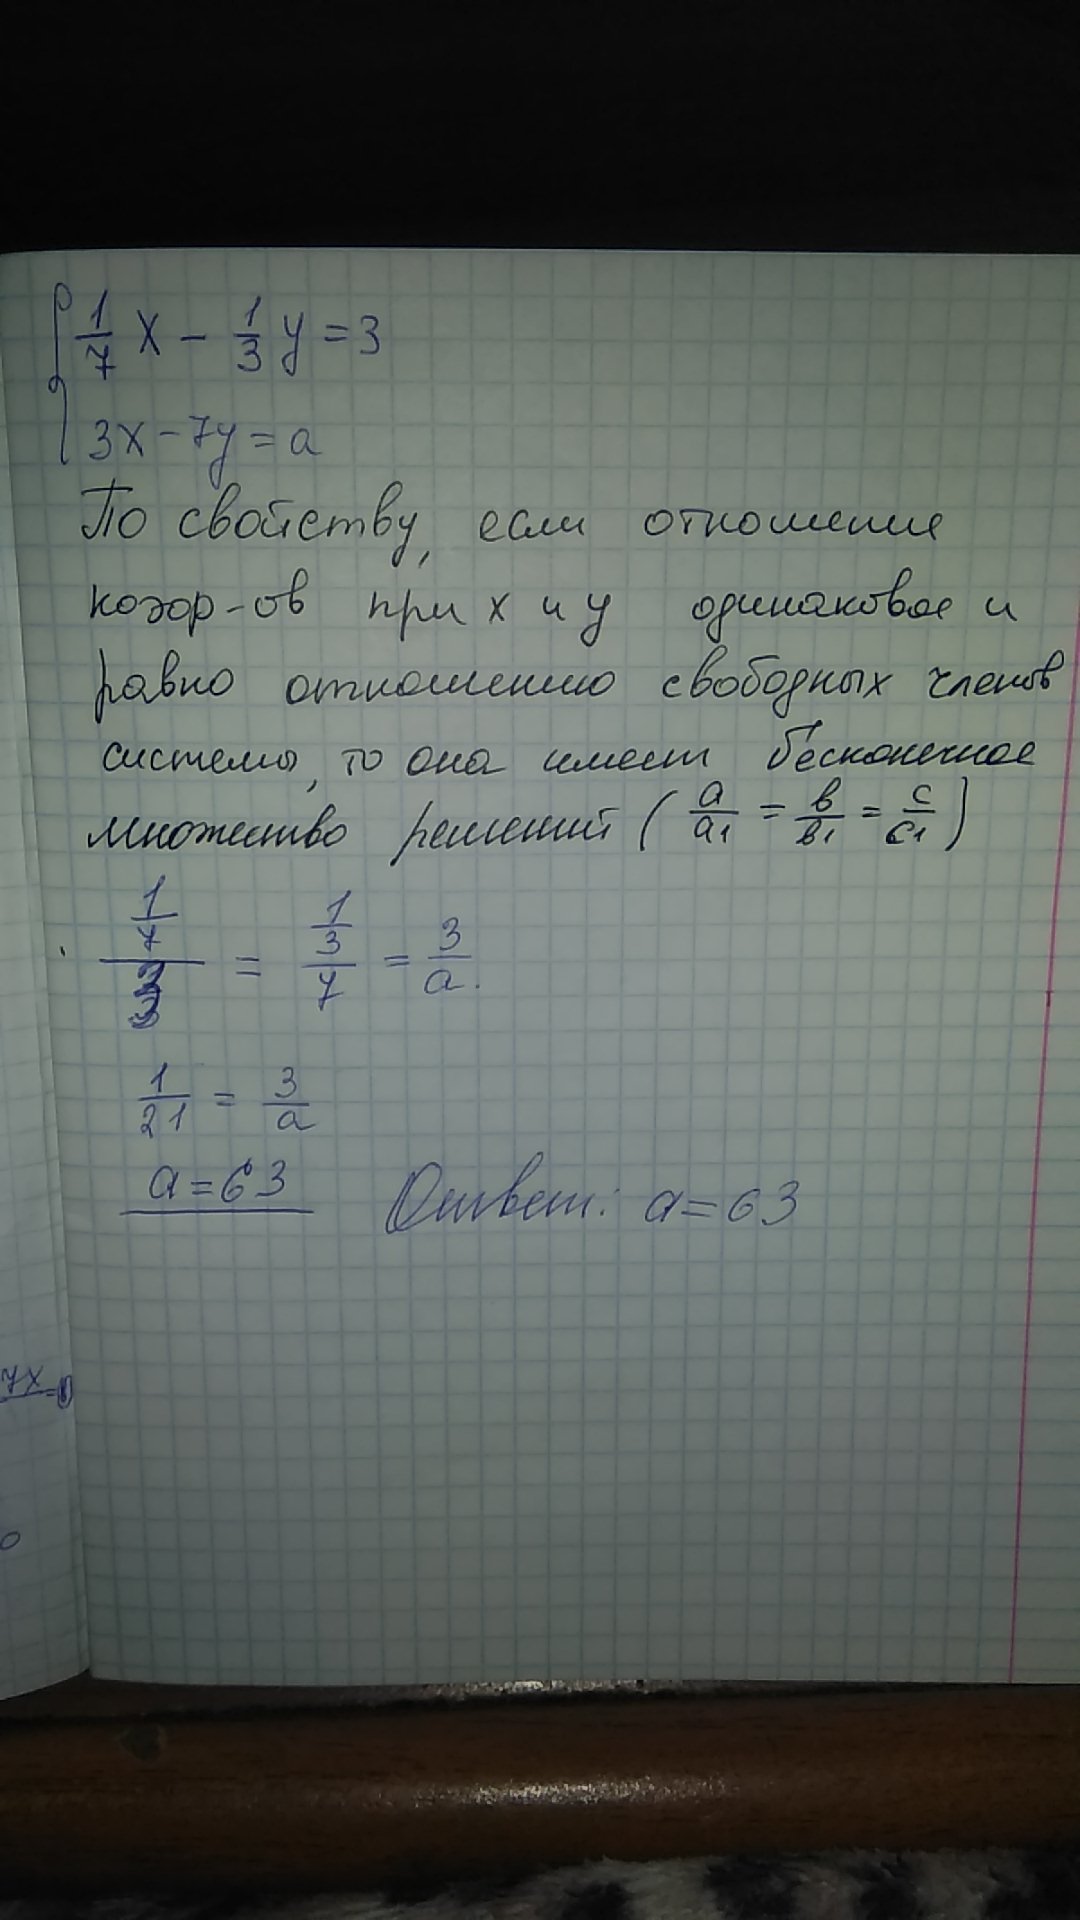 1/7 x - 1/3 y = 3
3x - 7y = a
По свойству, если отношение
коэф-ов при x и y одинаковое и
равно отношению свободных членов
системы, то она имеет бесконечное
множество решений ( a/a1 = в/в1 = c/c1 )
(1/7)/3 = (1/3)/7 = 3/a.
1/21 = 3/a
a = 63 Ответ: a = 63
7x